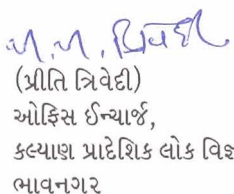 (પ્રીતિ ત્રિવેદી)
ઓફિસ ઈન્ચાર્જ,
કલ્યાણ પ્રાદેશિક લોક
ભાવનગર